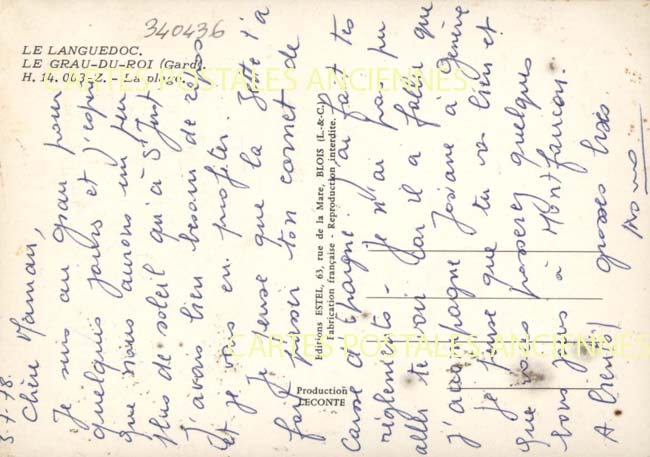 340436
LE LANGUEDOC.
LE GRAU-DU-ROI (Gard).
H. 14.003.Z. - La plage.
CARTES POSTALES ANCIENNES
Editions ESTEL, 63, rue de la Mare, BLOIS (L.-&-C.)
Fabrication française - Reproduction interdite.
Production
LECONTE
CARTES POSTALES ANCIENNES
78.
Chère Maman,
Je suis au Grau pour
quelques jours et j'espère
que nous aurons un peu
plus de soleil qu'à St Just
J'avais bien besoin de
et je vais en profiter.
Je pense que la t'a
fait passer ton carnet de
caisse d'épargne. J'ai fait tes
règlements - Je n'ai pas pu
aller te voir car il a fallu que
j'accompagne Josiane à Genève
je pense que tu vas bien et
que vous passerez quelques
bons jours à Montfaucon.
A bientôt grosses bises